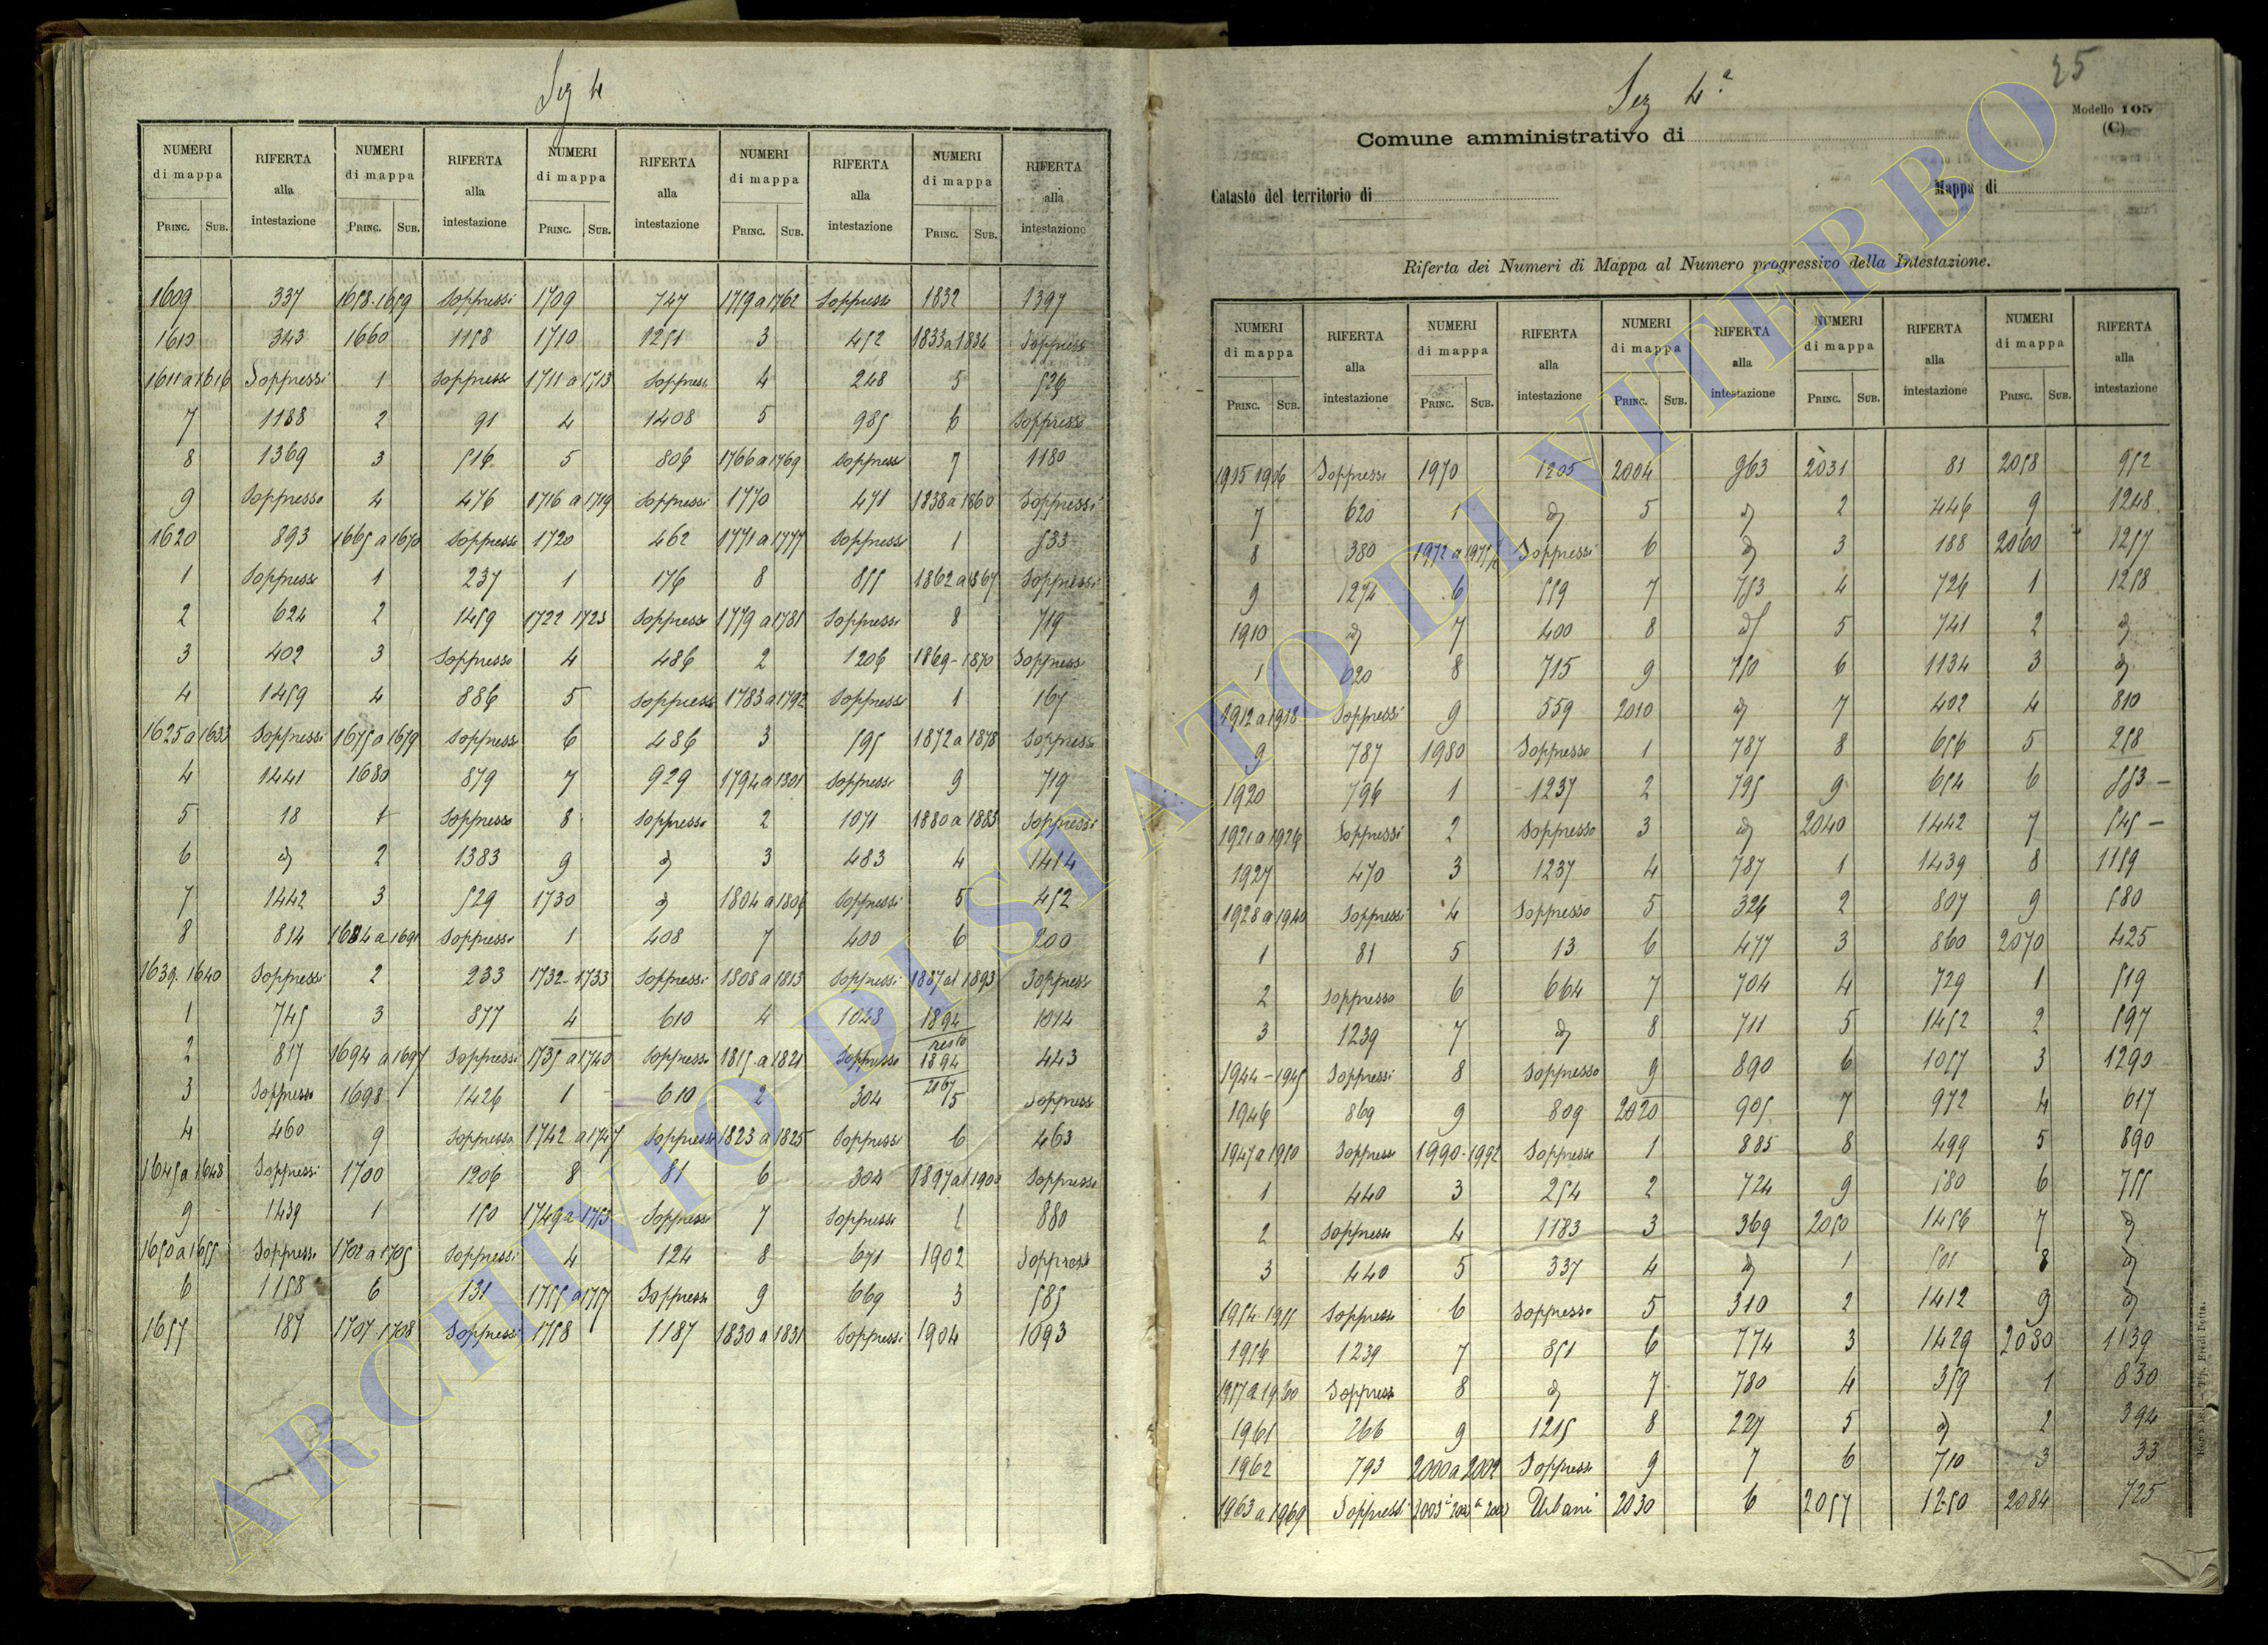 Sez 4
NUMERI di mappa RIFERTA alla intestazione NUMERI di mappa RIFERTA alla intestazione NUMERI di mappa RIFERTA alla intestazione NUMERI di mappa RIFERTA alla intestazione NUMERI di mappa RIFERTA alla intestazione
PRINC. SUB. PRINC. SUB. PRINC. SUB. PRINC. SUB. PRINC. SUB.
1609 337 1658-1659 Soppressi 1709 747 1759 a 1762 Soppressi 1832 1397
1610 343 1660 1158 1710 1251 3 452 1833 a 1834 Soppressi
1611 a 1616 Soppressi 1 Soppresso 1711 a 1713 Soppressi 4 248 5 526
7 1188 2 91 4 1408 5 985 6 Soppresso
8 1369 3 516 5 806 1766 a 1769 Soppressi 7 1180
9 Soppresso 4 476 1716 a 1719 Soppressi 1770 471 1838 a 1860 Soppressi
1620 893 1665 a 1670 Soppressi 1720 462 1771 a 1777 Soppressi 1 533
1 Soppresso 1 237 1 176 8 855 1862 a 1867 Soppressi
2 624 2 1459 1722 1723 Soppressi 1779 a 1781 Soppressi 8 719
3 402 3 Soppresso 4 486 2 1206 1869-1870 Soppressi
4 1459 4 886 5 Soppresso 1783 a 1792 Soppressi 1 167
1625 a 1633 Soppressi 1675 a 1679 Soppressi 6 486 3 595 1872 a 1878 Soppressi
4 1441 1680 879 7 929 1794 a 1801 Soppressi 9 719
5 18 1 Soppresso 8 Soppresso 2 1071 1880 a 1883 Soppressi
6 d 2 1383 9 d 3 483 4 1414
7 1442 3 529 1730 d 1804 a 1806 Soppressi 5 452
8 814 1684 a 1691 Soppressi 1 408 7 400 6 200
1639-1640 Soppressi 2 233 1732-1733 Soppressi 1808 a 1813 Soppressi 1887 al 1893 Soppressi
1 745 3 877 4 610 4 1048 1894 1014
2 817 1694 a 1697 Soppressi 1735 a 1740 Soppressi 1815 a 1821 Soppressi resto 1894 443
3 Soppresso 1698 1426 1 610 2 304 2167 5 Soppresso
4 460 9 Soppresso 1742 a 1747 Soppressi 1823 a 1825 Soppressi 6 463
1645 a 1648 Soppressi 1700 1206 8 81 6 304 1897 al 1900 Soppressi
9 1439 1 150 1749 a 1753 Soppressi 7 Soppresso 1 880
1650 a 1655 Soppressi 1702 a 1705 Soppressi 4 124 8 671 1902 Soppresso
6 1158 6 131 1755 a 1757 Soppressi 9 669 3 585
1657 187 1707-1708 Soppressi 1758 1187 1830 a 1831 Soppressi 1904 1093
25
Sez 4ª
Modello 105
(C)
Comune amministrativo di
Catasto del territorio di Mappa di
Riferta dei Numeri di Mappa al Numero progressivo della Intestazione.
NUMERI di mappa RIFERTA alla intestazione NUMERI di mappa RIFERTA alla intestazione NUMERI di mappa RIFERTA alla intestazione NUMERI di mappa RIFERTA alla intestazione NUMERI di mappa RIFERTA alla intestazione
PRINC. SUB. PRINC. SUB. PRINC. SUB. PRINC. SUB. PRINC. SUB.
1905 1906 Soppressi 1970 1205 2004 963 2031 81 2058 952
7 620 1 d 5 d 2 446 9 1248
8 380 1972 a 1975 Soppressi 6 d 3 188 2060 1257
9 1274 6 559 7 753 4 724 1 1258
1910 d 7 400 8 d 5 741 2 d
1 620 8 715 9 750 6 1134 3 d
1912 a 1918 Soppressi 9 559 2010 d 7 402 4 810
9 787 1980 Soppresso 1 787 8 656 5 258
1920 796 1 1237 2 795 9 654 6 553
1921 a 1926 Soppressi 2 Soppresso 3 d 2040 1442 7 545
1927 470 3 1237 4 787 1 1439 8 1159
1928 a 1940 Soppressi 4 Soppresso 5 326 2 807 9 580
1 81 5 13 6 477 3 860 2070 425
2 Soppresso 6 664 7 704 4 729 1 519
3 1239 7 d 8 711 5 1452 2 597
1944-1945 Soppressi 8 Soppresso 9 890 6 1057 3 1290
1946 869 9 809 2020 905 7 972 4 617
1947 a 1950 Soppressi 1990-1992 Soppressi 1 885 8 499 5 890
1 440 3 254 2 724 9 580 6 755
2 Soppresso 4 1183 3 369 2050 1456 7 d
3 440 5 337 4 d 1 501 8 d
1954-1955 Soppressi 6 Soppresso 5 310 2 1412 9 d
1956 1239 7 851 6 774 3 1429 2080 1139
1957 a 1960 Soppressi 8 d 7 780 4 359 1 830
1961 266 9 1215 8 227 5 d 2 394
1962 793 2000 a 2002 Soppressi 9 7 6 710 3 33
1963 a 1969 Soppressi Urbani 2030 6 2057 1250 2084 725
ARCHIVIO DI STATO DI VITERBO